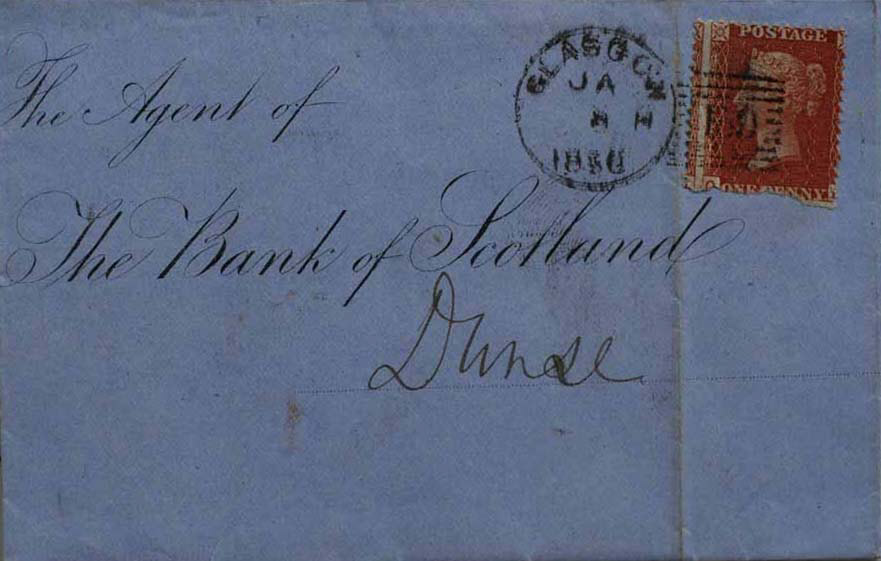 POSTAGE
GLASGOW
JA
8
ONE PENNY
The Agent of
The Bank of Scotland
Dunse